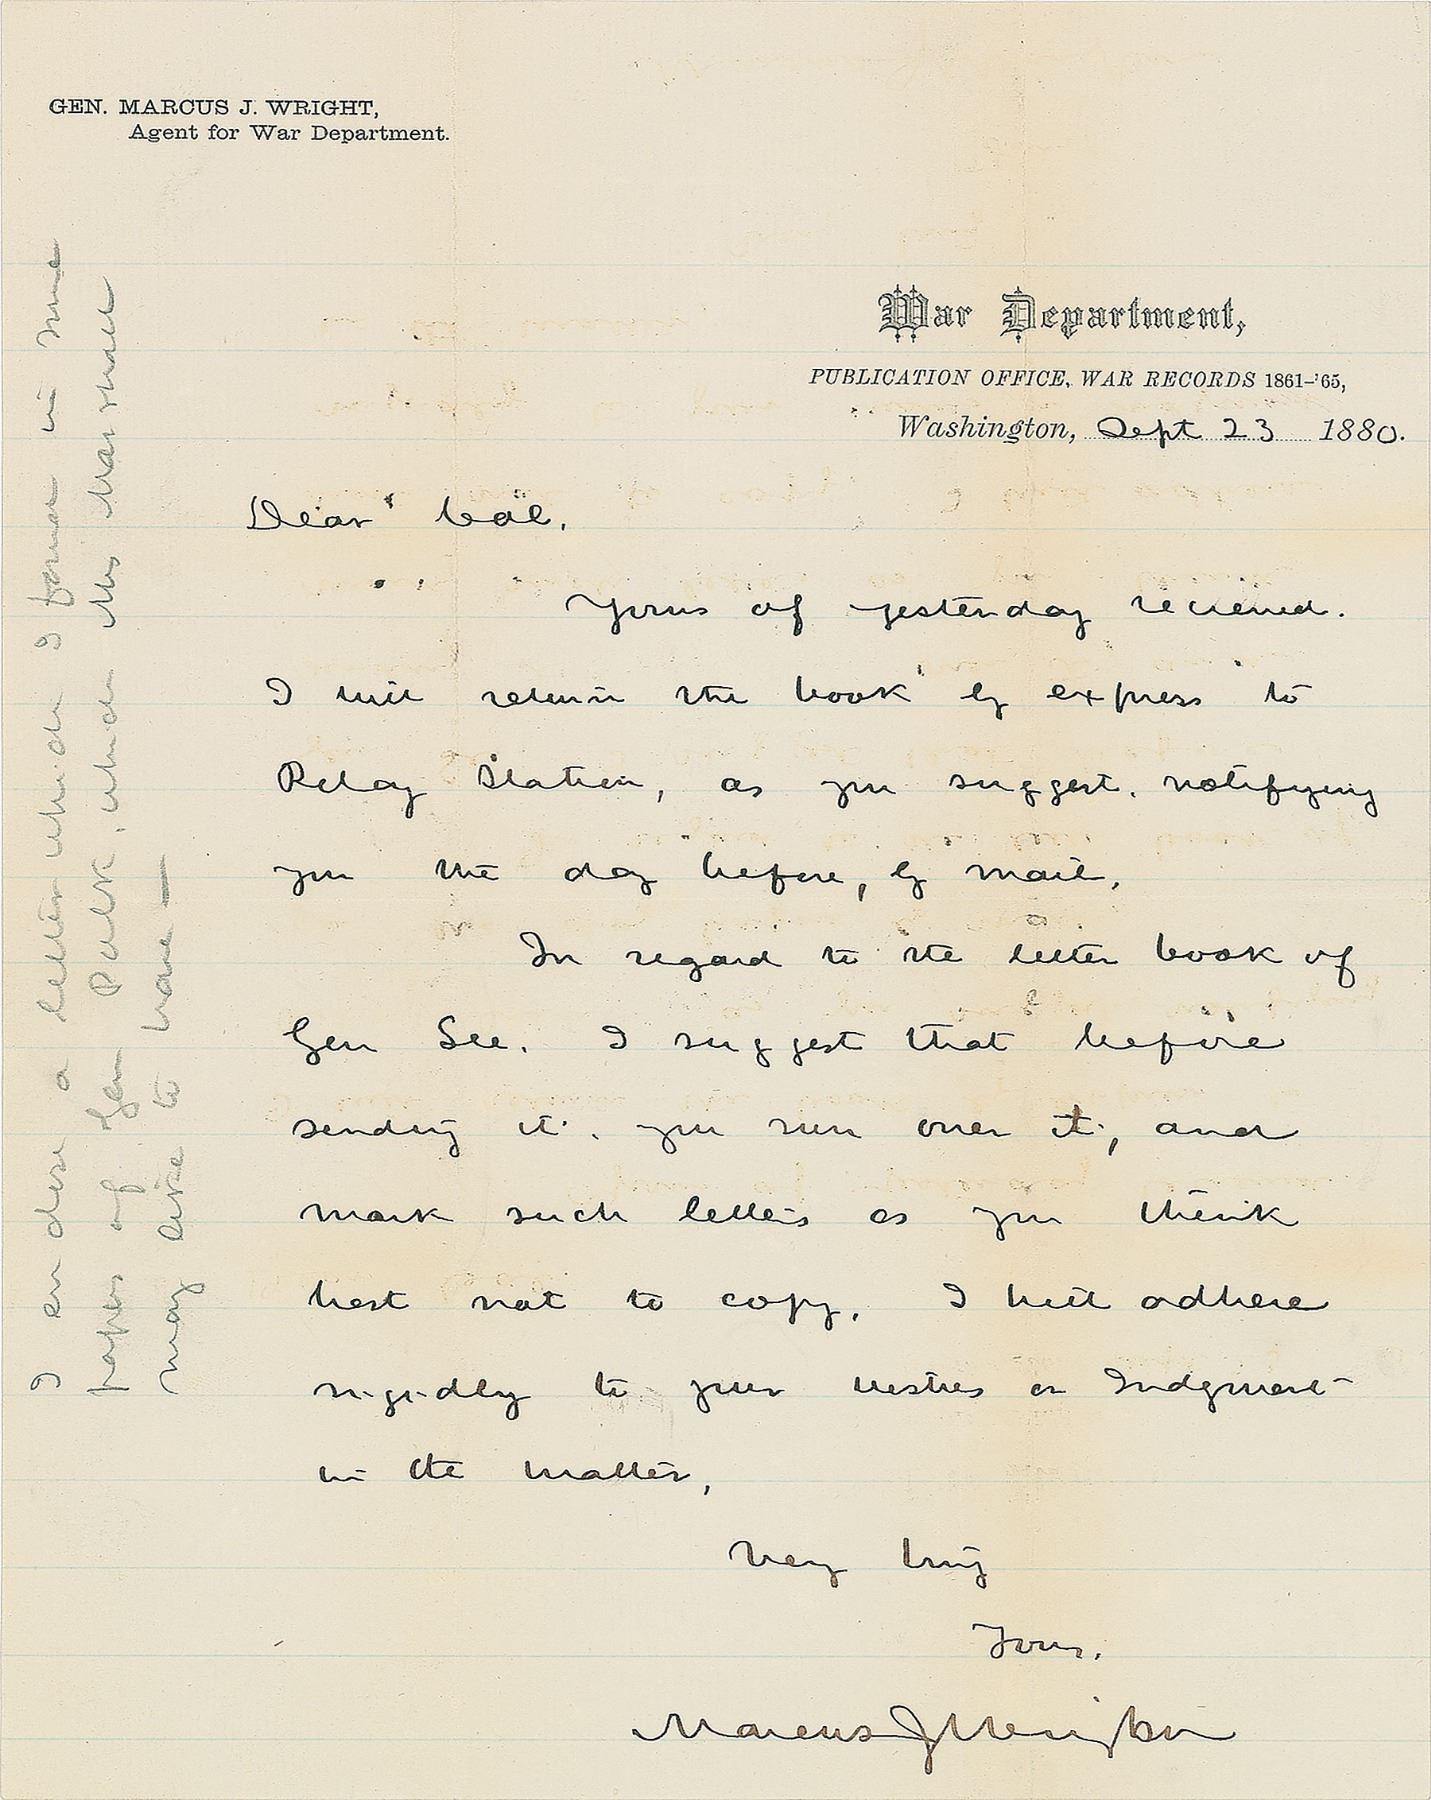 GEN. MARCUS J. WRIGHT,
Agent for War Department.
War Department,
PUBLICATION OFFICE, WAR RECORDS 1861-'65,
Washington, Sept 23 1880.
Dear Col.
Yours of yesterday recieved.
I will return the book by express to
Relay Station, as you suggest. notifying
you the day before, by mail.
In regard to the letter book of
Gen Lee. I suggest that before
sending it. you run over it, and
mark such letters as you think
best not to copy. I will adhere
rigidly to your wishes or Judgment
in the matter,
Very truly
Yours.
Marcus J Wright
I enclose a letter which I found in some
papers of Gen Polk, which Mrs Marshall
may like to have —